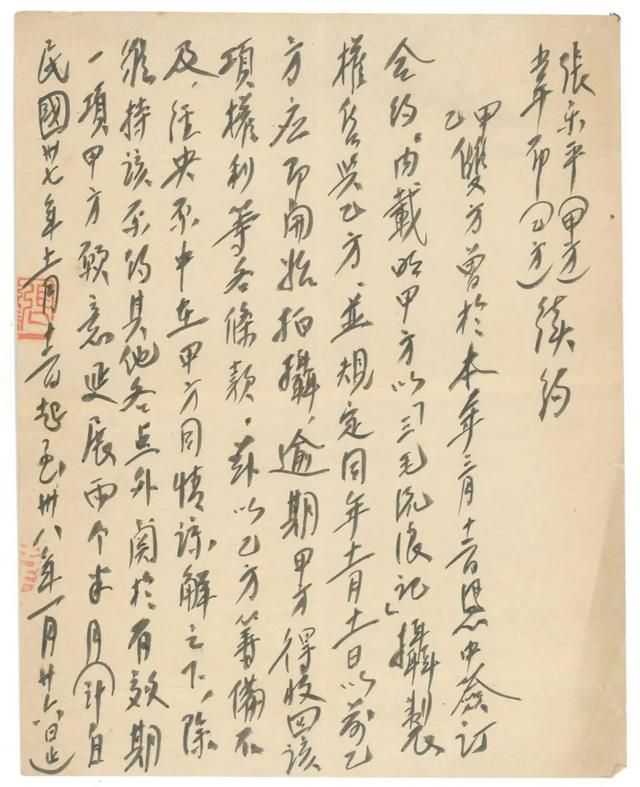 張乐平（甲方）
韋布（乙方）續約
甲乙雙方曾於本年三月十一日憑中簽訂
合约，内載明甲方以「三毛流浪记」攝製
權售與乙方，並規定同年十一月十一日以前乙
方应即開始拍攝，逾期甲方得收回该
項權利等各條款，茲以乙方籌備不
及，经央原中在甲方同情谅解之下，除
維持该原约其他各点外関於有效期
一項甲方願意延展兩个半月（計自
民國卅七年十一月十一日起至卅八年一月廿六日止）